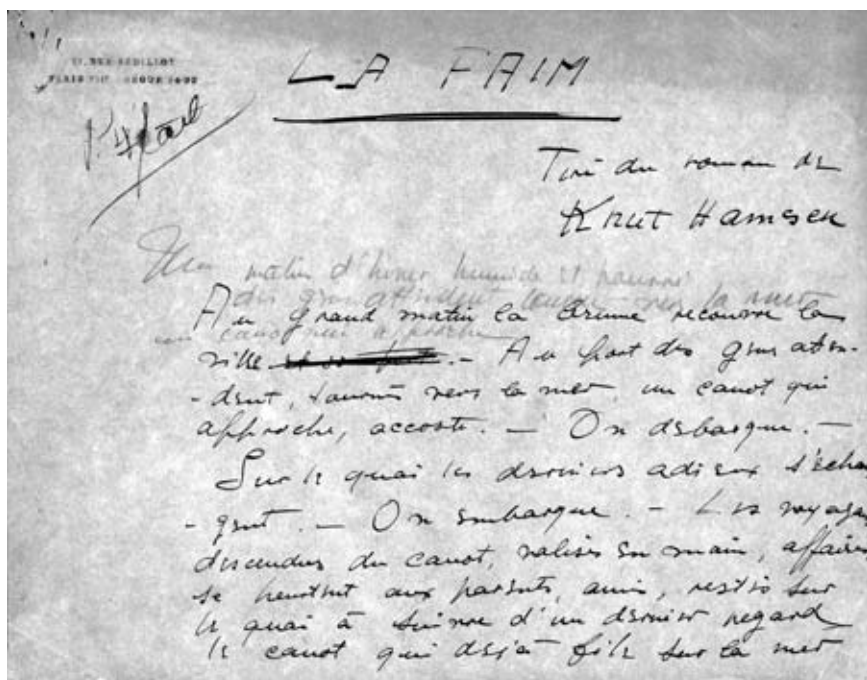 LA FAIM
Tiré du roman de
Knut Hamsen
matin d'hiver humide et
des gens attendent vers la mer
un canot approche
Au grand matin la brume recouvre la
ville — Au port des gens atten-
-dent, tournés vers la mer, un canot qui
approche, accoste. — On débarque. —
Sur le quai les derniers adieux s'échan
-gent. — On embarque. — Les voyag
descendus du canot, valises en main, affair
se heurtent aux parents, amis, restés sur
le quai à suivre d'un dernier regard
le canot qui déjà file sur la mer